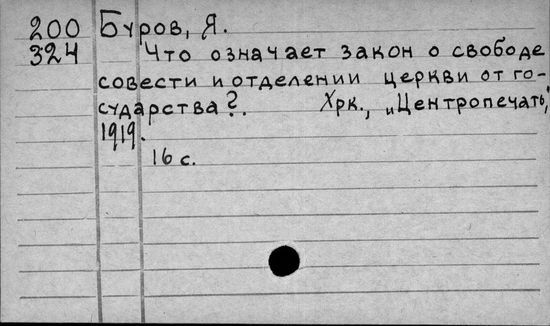 200 Буров, Я.
324 Что означает закон о свободе
совести и отделении церкви от го-
сударства?. Хрк., „Центропечать",
1919.
16 с.